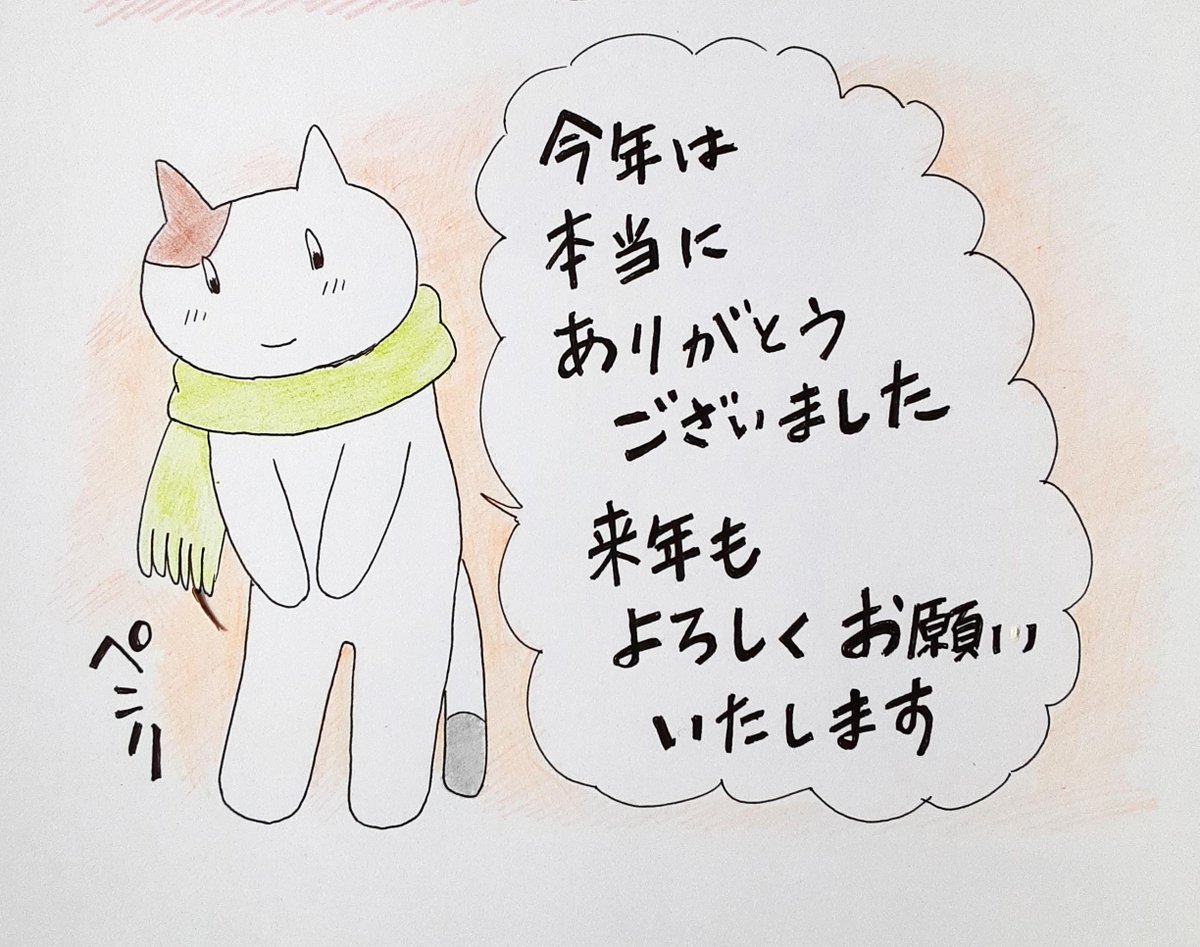 今年は
本当に
ありがとう
ございました
来年も
よろしくお願い
いたします
ペコリ